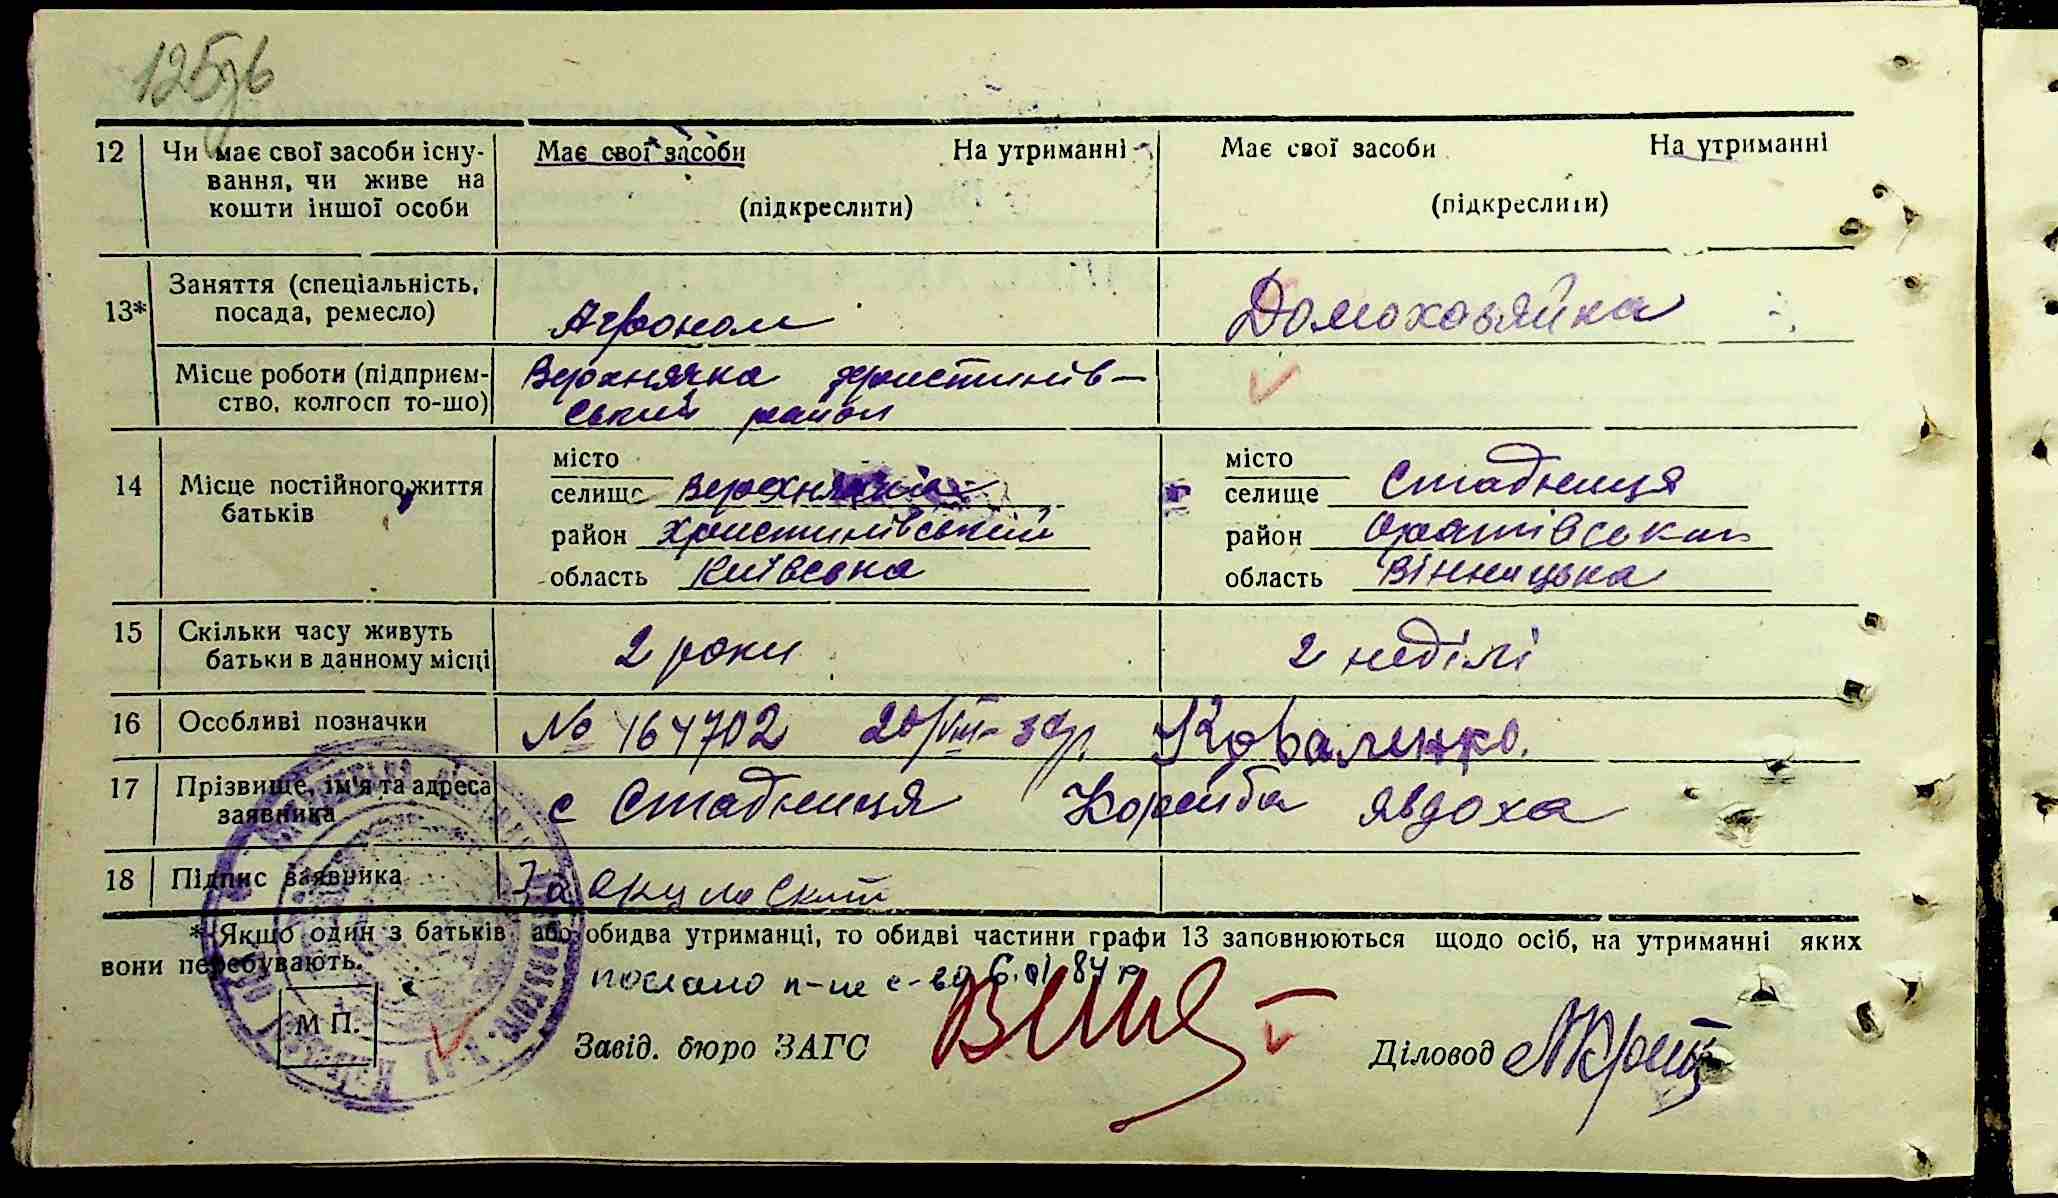 125зв
12 Чи має свої засоби існу- Має свої засоби На утриманні Має свої засоби На утриманні
вання, чи живе на
кошти іншої особи (підкреслити) (підкреслити)
13* Заняття (спеціальність,
посада, ремесло) Агроном Домохозяйка
Місце роботи (підприєм- Верхнячка христинів-
ство, колгосп то-шо) ський район
14 Місце постійного життя
батьків
місто
селище
район Христинівський
область Київська
місто
селище Стадниця
район Оратівський
область Вінницька
15 Скільки часу живуть
батьки в данному місці 2 роки 2 неділі
16 Особливі позначки № 164702 20/VIII-39р. Коваленко.
17 Прізвище, ім'я та адреса
заявника с Стадниця Корейба явдоха
18 Підпис заявника За
* Якщо один з батьків або обидва утриманці, то обидві частини графи 13 заповнюються щодо осіб, на утриманні яких
вони перебувають.
послано п-не с-во 6.01.84 р
М П.
Завід. бюро ЗАГС Діловод